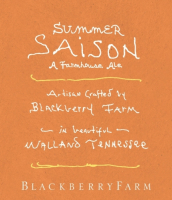 SUMMER
SAISON
A Farmhouse Ale
Artisan Crafted by
Blackberry Farm
in beautiful
WALLAND TENNESSEE
BLACKBERRYFARM